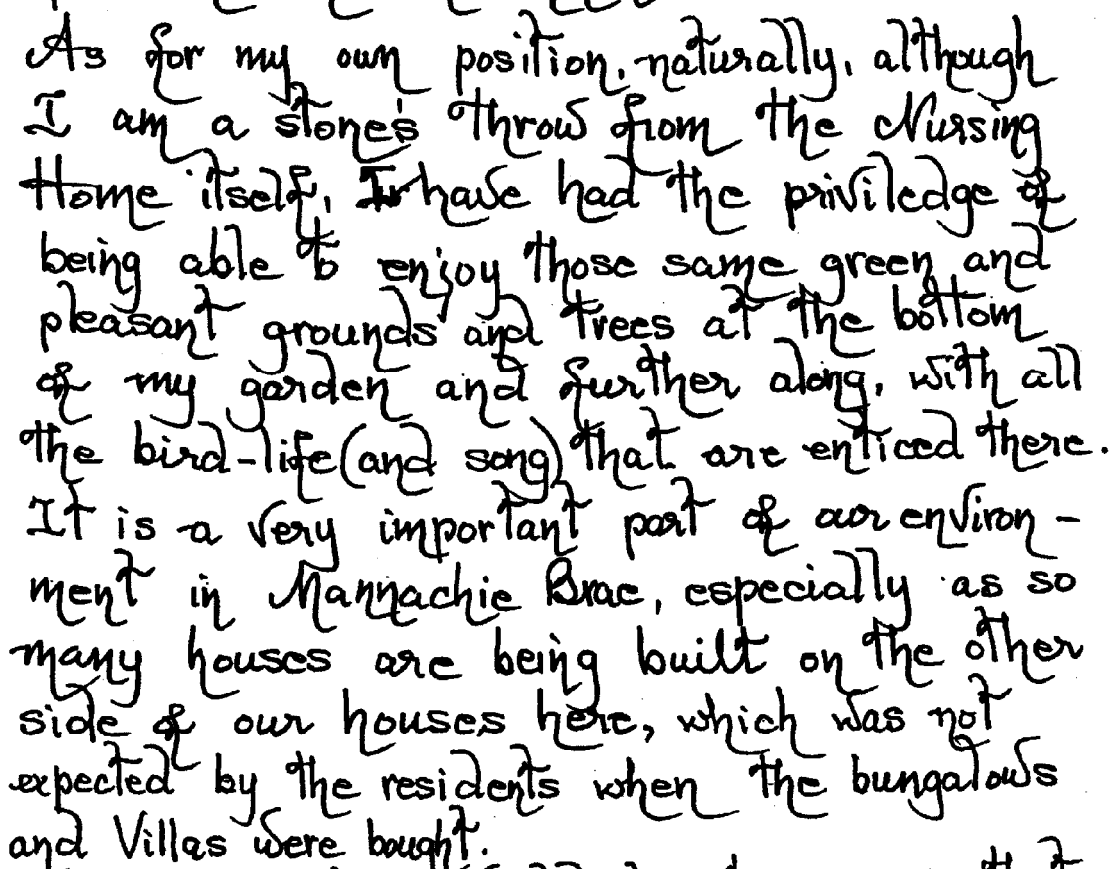 As for my own position, naturally, although
I am a stone's throw from the Nursing
Home itself, I have had the priviledge of
being able to enjoy those same green and
pleasant grounds and trees at the bottom
of my garden and further along, with all
the bird-life (and song) that are enticed there.
It is a very important part of our environ-
ment in Mannachie Brae, especially as so
many houses are being built on the other
side of our houses here, which was not
expected by the residents when the bungalows
and Villas were bought.